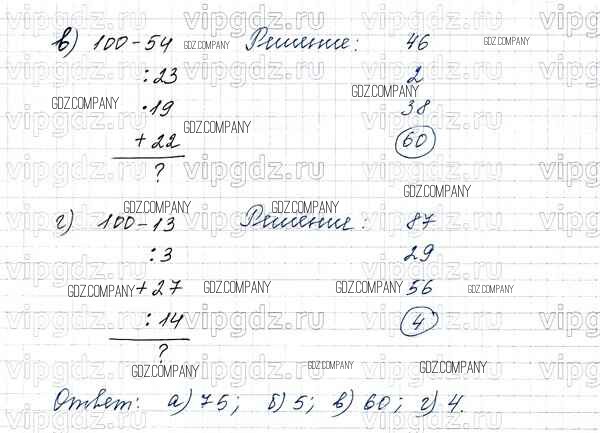 в) 100-54 GDZ.COMPANY Решение: 46 GDZ.COMPANY
:23 2
GDZ.COMPANY GDZ.COMPANY
·19 38
GDZ.COMPANY
+22 60
?
GDZ.COMPANY
GDZ.COMPANY GDZ.COMPANY
г) 100-13 Решение: 87
:3 29
GDZ.COMPANY +27 GDZ.COMPANY GDZ.COMPANY 56 GDZ.COMPANY
:14 4
?
GDZ.COMPANY GDZ.COMPANY GDZ.COMPANY
Ответ: а) 75; б) 5; в) 60; г) 4.
vipgdz.ru vipgdz.ru vipgdz.ru